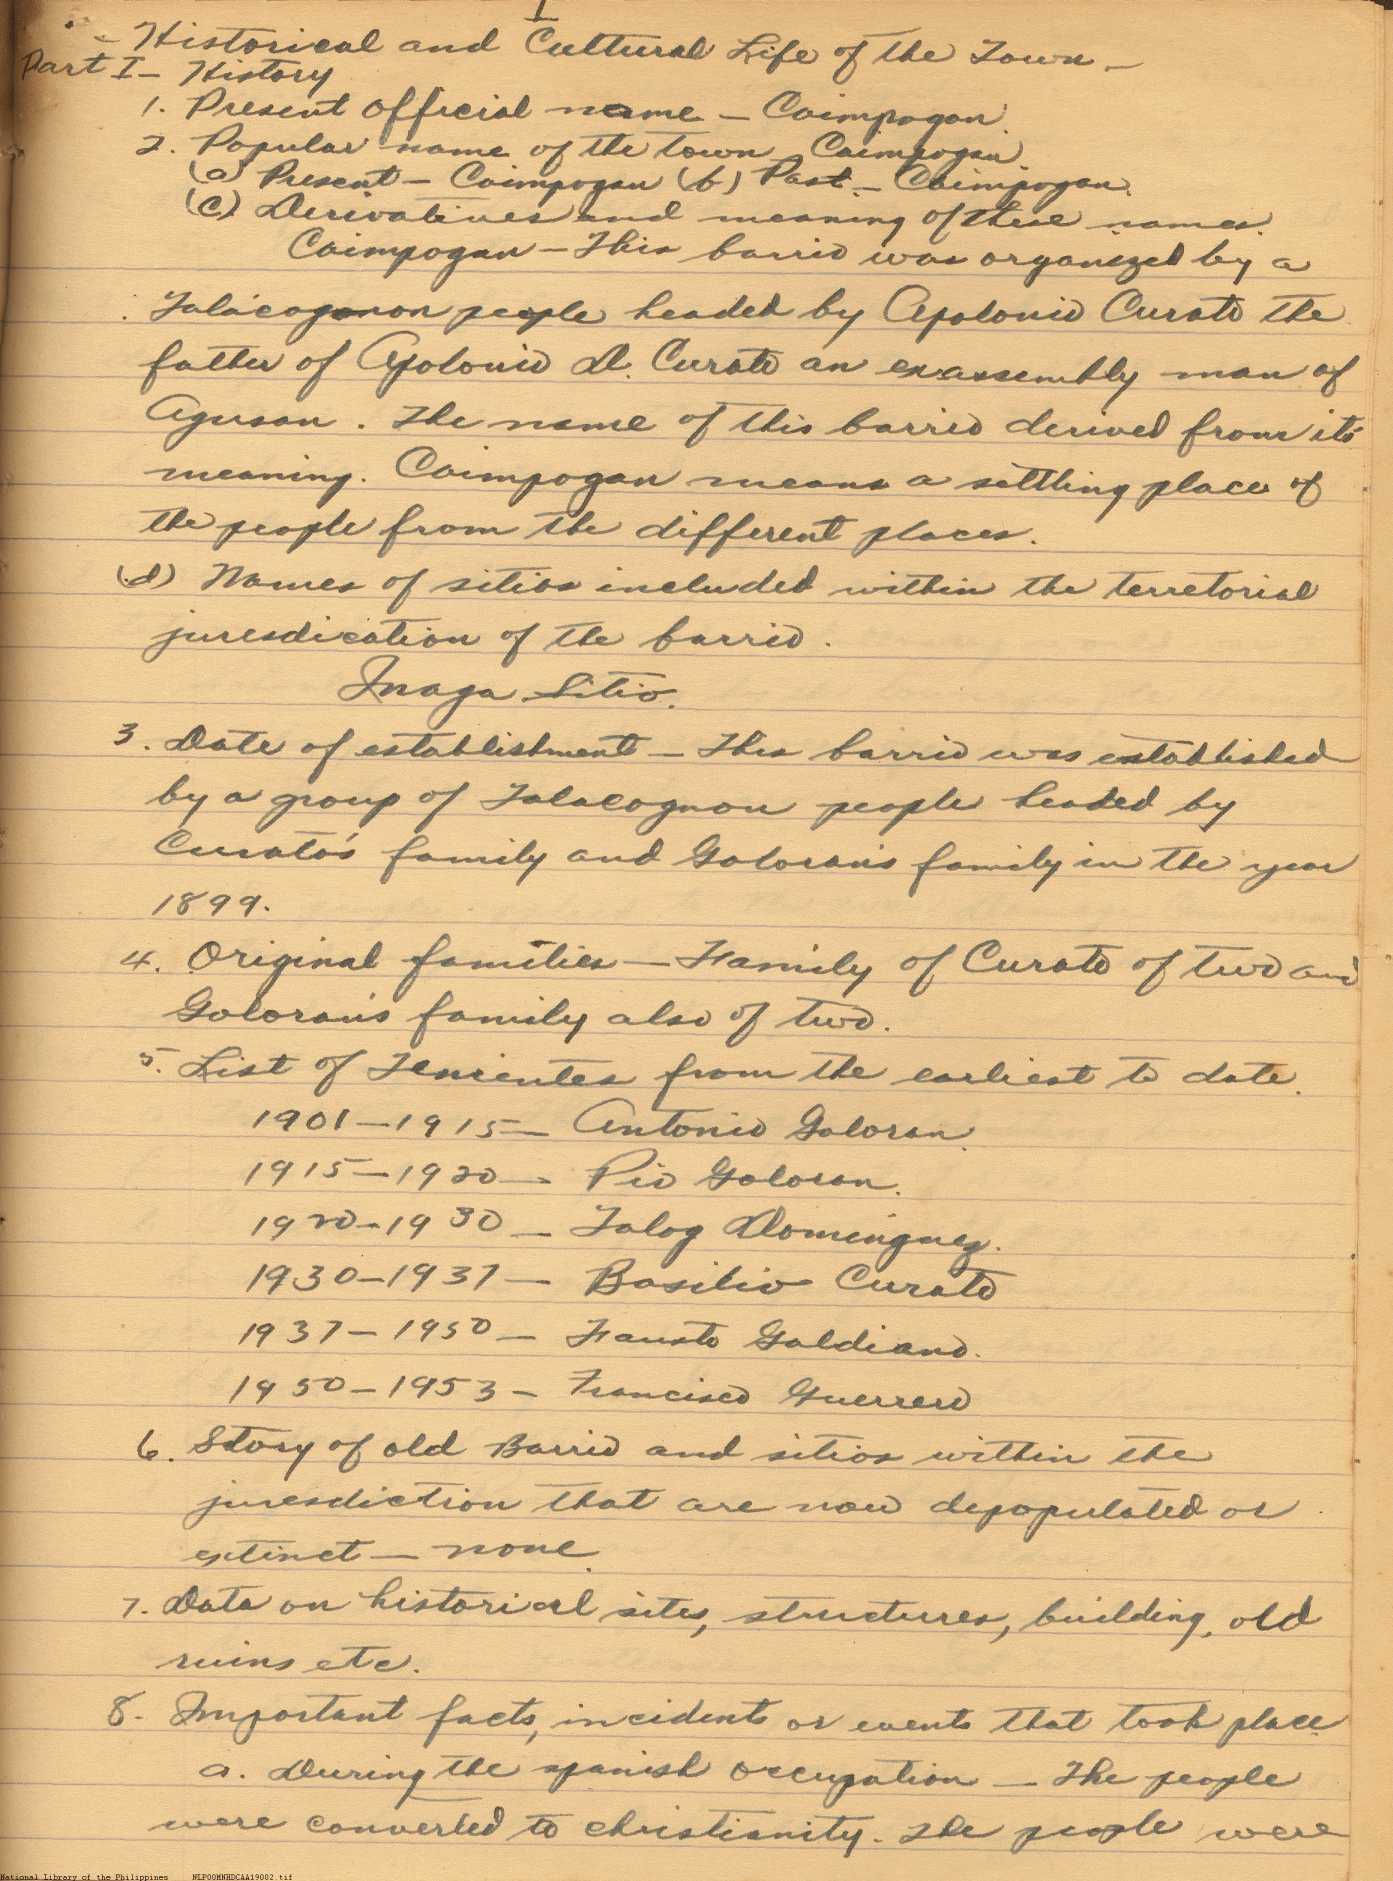 1
- Historical and Cultural Life of the Town -
Part I - History
1. Present official name - Caimpogan.
2. Popular name of the town - Caimpogan.
(a) Present - Caimpogan (b) Past - Caimpogan.
(c) Derivatives and meaning of these names.
Caimpogan - This barrio was organized by a
Talacogonon people headed by Apolonio Curato the
father of Apolonio D. Curato an exassembly man of
Agusan. The name of this barrio derived from it's
meaning. Caimpogan means a settling place of
the people from the different places.
(d) Names of sitios included within the terretorial
juresdication of the barrio.
Inaga Sitio.
3. Date of establishment - This barrio was established
by a group of Talacognon people headed by
Curato's family and Goloran's family in the year
1899.
4. Original families - Family of Curato of two and
Goloran's family also of two.
5. List of Tenientes from the earliest to date.
1901-1915 - Antonio Goloran.
1915-1920 - Pio Goloran.
1920-1930 - Talog Dominguez.
1930-1937 - Basilio Curato
1937-1950 - Fausto Galdiano.
1950-1953 - Francisco Guerrero
6. Story of old Barrio and sitios within the
juresdiction that are now depopulated or
extinct - none.
7. Data on historical sites, structures, building, old
ruins etc.
8. Important facts, incidents or events that took place
a. During the spanish occupation - The people
were converted to christianity. The people were
National Library of the Philippines NLP00MNHDCAA19002.tif